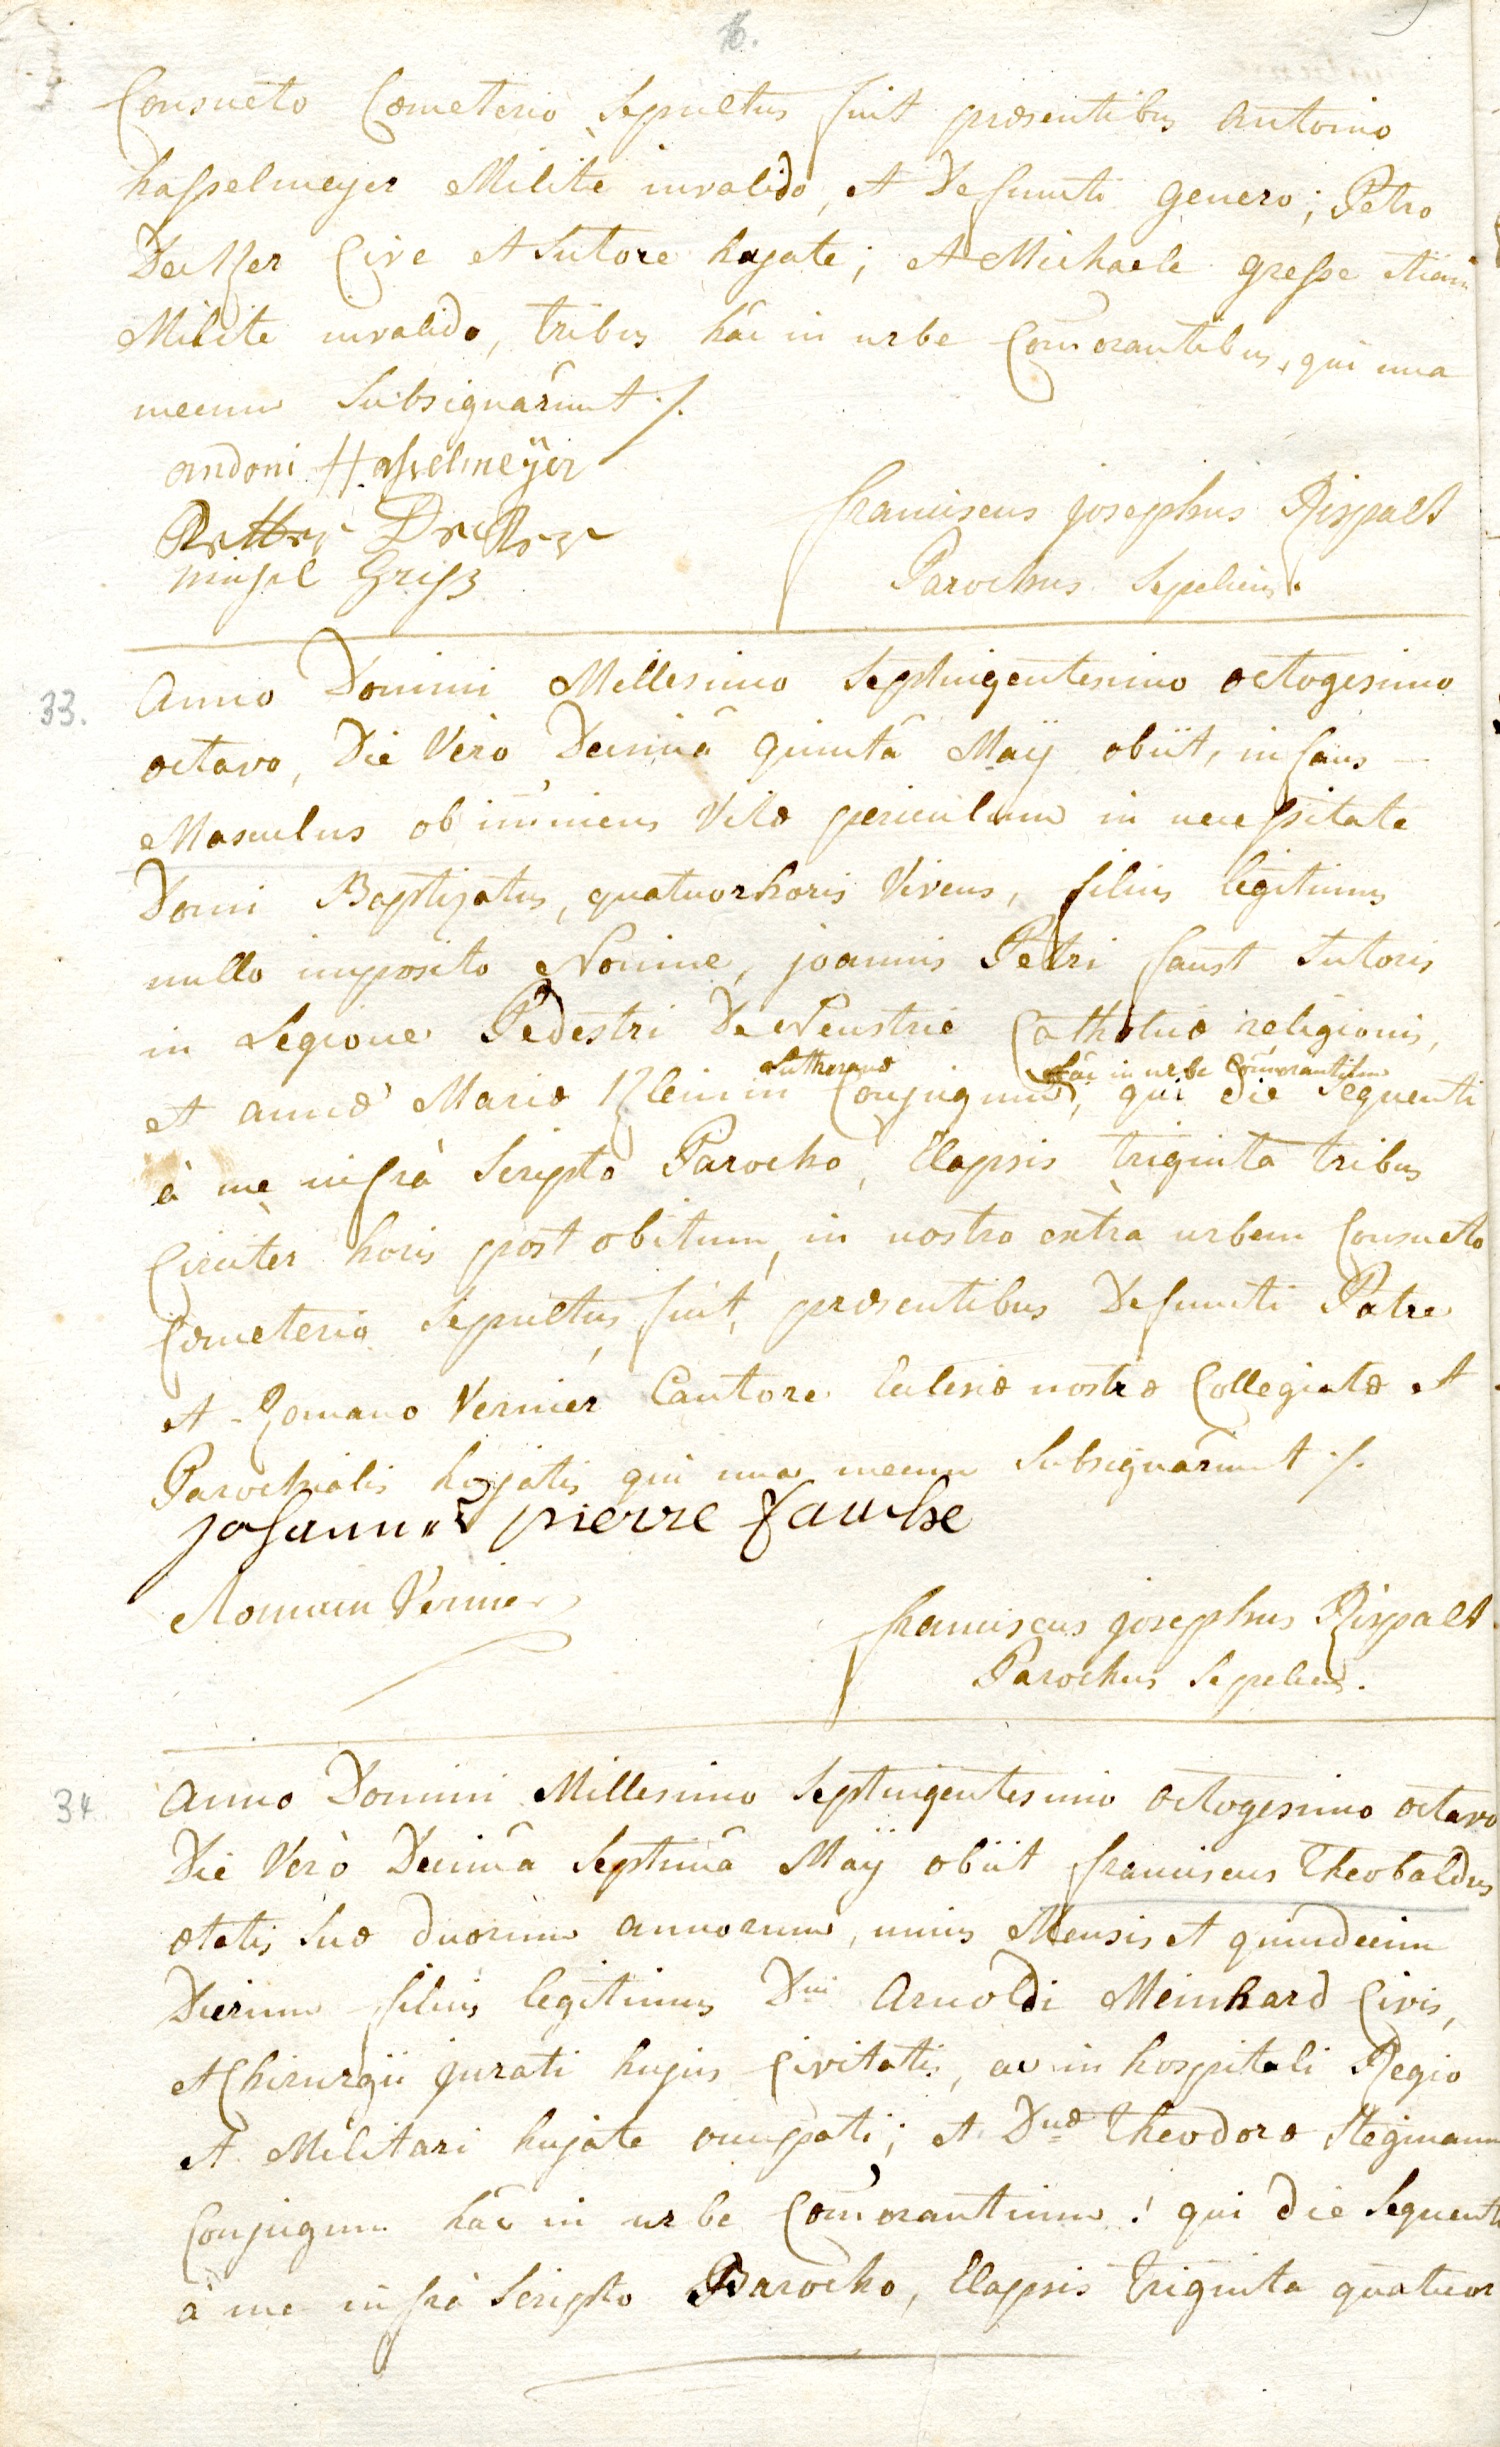 16.
Consueto Cœmeterio Sepultus fuit præsentibus Antonio
hasselmeyer Milite invalido, et Defuncti genero; Petro
Decker Cive et Sutore hujate; et Michaele gresse etiam
Milite invalido, tribus hâc in urbe Com̃orantibus, qui una
mecum Subsignârunt ./.
andoni Hasselmeÿer
franciscus josephus Rispalt
Petter Decker
Parochus Sepeliens.
33.
Anno Domini Millesimo Septuigentesimo octogesimo
octavo, Die Vero Decimâ quintâ Maÿ obiit, infans —
Masculus ob im̃inens Vitæ periculum in necessitate
Domi Baptizatus, quatuor horis Vivens, filius legitimus
nullo imposito Nomine, joannis Petri faust Sutoris
in Legione Pedestri De Neustrie Catholicæ religionis,
Lutheranæ hâc in urbe Com̃orantibus
et annæ Mariæ Kleinin Conjugum, qui die Sequenti
à me infrà Scripto Parocho, Elapsis triginta tribus
Circiter horis post obitum, in nostro extrà urbem Consueto
Cœmeterio Sepultus fuit, præsentibus Defuncti Patre
et Romano Vernier Cantore Eclesiæ nostræ Collegiatæ et
Parochialis hujatis qui una mecum Subsignârunt ./.
johannes pierre fauche
Romain Vernier
franciscus josephus Rispalt
Parochus Sepeliens.
34.
Anno Domini Millesimo Septuigentesimo octogesimo octavo
Die Verò Decimâ Septimâ Maÿ obiit franciscus Theobaldus
ætatis Suæ duorum annorum, unius Mensis et quindecim
Dierum filius legitimus Dni Arnoldi Meinhard Civis,
et Chirurgii jurati hujus Civitatis, ac in hospitali Regio
et Militari hujate occupati; et Dnæ Theodoræ Stegmann
Conjugum hâc in urbe Com̃orantium! qui die Sequenti
à me infrà Scripto Parocho, Elapsis triginta quatuor